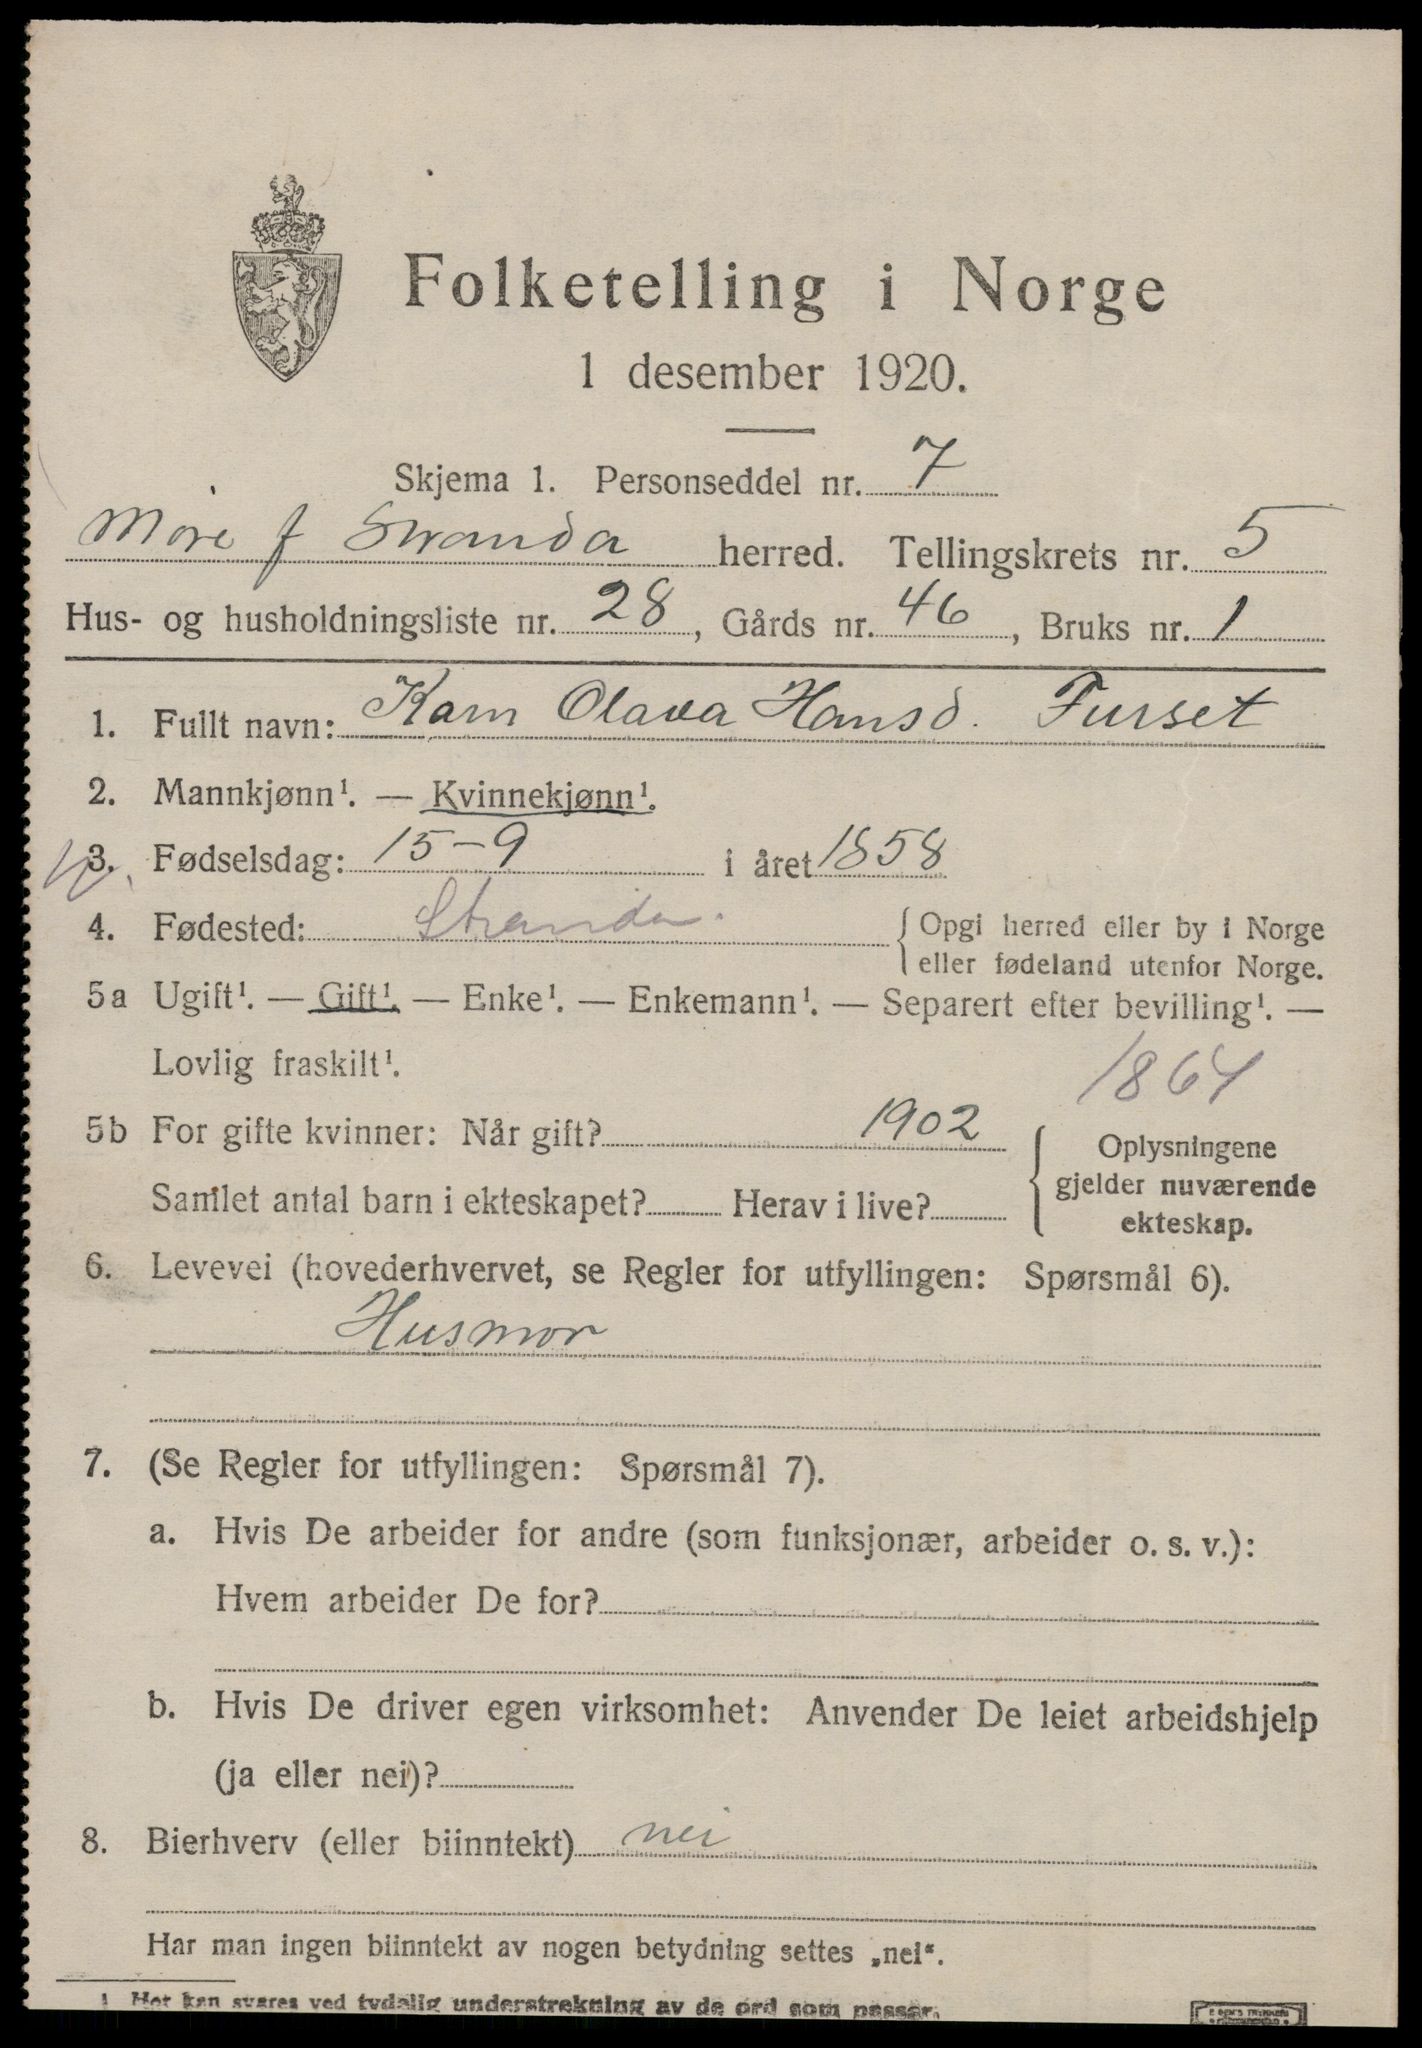 Folketelling i Norge
1 desember 1920.
Skjema 1. Personseddel nr. 7
Møre f Stranda herred. Tellingskrets nr. 5
Hus- og husholdningsliste nr. 28, Gårds nr. 46, Bruks nr. 1
1. Fullt navn: Karn Olava Hansd. Furset
2. Mannkjønn¹. — Kvinnekjønn¹.
3. Fødselsdag: 15-9 i året 1858
4. Fødested: Stranda. { Opgi herred eller by i Norge
eller fødeland utenfor Norge.
5a Ugift¹. — Gift¹. — Enke¹. — Enkemann¹. — Separert efter bevilling¹. —
Lovlig fraskilt¹.
1864
5b For gifte kvinner: Når gift? 1902
Samlet antal barn i ekteskapet? Herav i live?
{ Oplysningene
gjelder nuværende
ekteskap.
6. Levevei (hovederhvervet, se Regler for utfyllingen: Spørsmål 6).
Husmor
7. (Se Regler for utfyllingen: Spørsmål 7).
a. Hvis De arbeider for andre (som funksjonær, arbeider o. s. v.):
Hvem arbeider De for?
b. Hvis De driver egen virksomhet: Anvender De leiet arbeidshjelp
(ja eller nei)?
8. Bierhverv (eller biinntekt) nei
Har man ingen biinntekt av nogen betydning settes „nei“.
1 Her kan svares ved tydelig understrekning av de ord som passer.